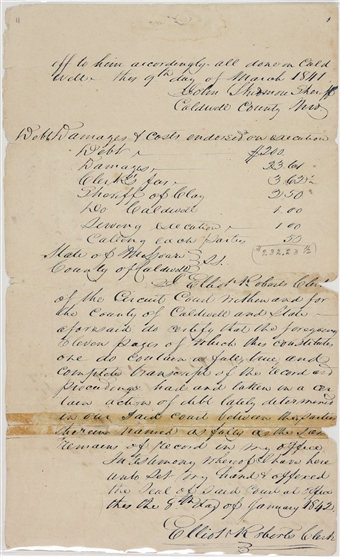 off to him accordingly. all done in Cald
well this 9th day of March 1841
John Thomson Sher ff
Caldwell County Mo
Debt Damages & Costs endorsed on execution
Debt, $200
Damages, 33.61
Clerk's fees 3.63½
Sheriff of Clay 2.50
Do Caldwell 1.00
Serving execution, 1.00
Calling each Parties 50
State of Missouri
County of Caldwell } Sct.
I Elliott Roberts Clerk
of the Circuit Court within and for
the County of Caldwell and State
aforesaid do certify that the foregoing
Eleven pages of which this constitutes
one do contain a full, true, and
complete transcript of the record and
proceedings had and taken in a cer
tain action of debt lately determined
in our said court between the parties
therein named as fully as the same
remains of record in my office.
In testimony whereof I have here
unto set my hand & affixed
the Seal of said Court at office
this the 8th day of January 1842.
Elliott Roberts Clerk